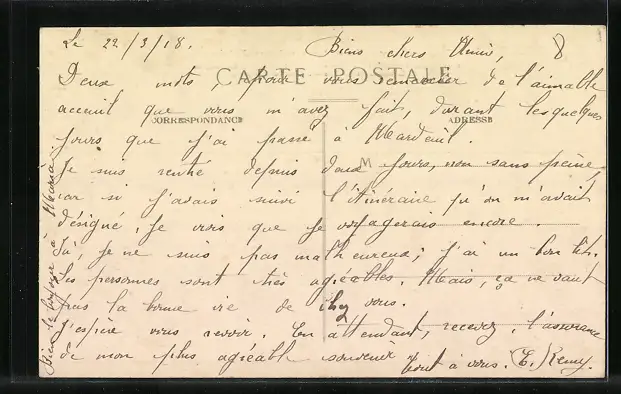 Le 22/3/18.
Biens chers Amis,
8
CARTE POSTALE
Deux mots, pour vous remercier de l'aimable
acceuil que vous m'avez fait, durant les quelques
CORRESPONDANCE
ADRESSE
jours que j'ai passé à Mardeuil.
M
Je suis rentré depuis deux jours, non sans peine,
car si j'avais suivi l'itinéraire qu'on m'avait
désigné, je crois que je voyagerais encore.
Ici, je ne suis pas malheureux; j'ai un bon lit.
Les personnes sont très agréables. Mais, ça ne vaut
pas la bonne vie de chez vous.
J'espère vous revoir, En attendant, recevez, l'assurance
de mon plus agréable souvenir
Tout à vous. E. Remy.
Bien le bonjour à Maria